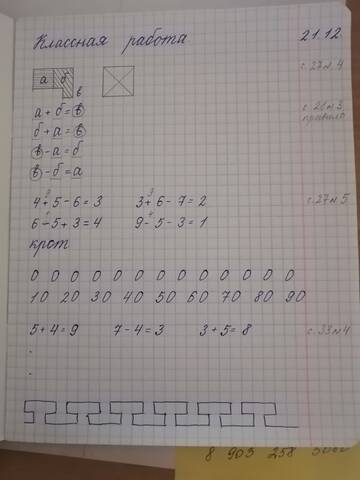 Классная работа 21.12.
с.27 №4
а б
в
с.26 №3
правило
а + б = в
б + а = в
в - а = б
в - б = а
9 3
4 + 5 - 6 = 3 3 + 6 - 7 = 2
с.27 №5
1 4
6 - 5 + 3 = 4 9 - 5 - 3 = 1
крот
0 0 0 0 0 0 0 0 0 0 0 0 0
10 20 30 40 50 60 70 80 90
5 + 4 = 9 7 - 4 = 3 3 + 5 = 8 с.33 №4
8 903 258